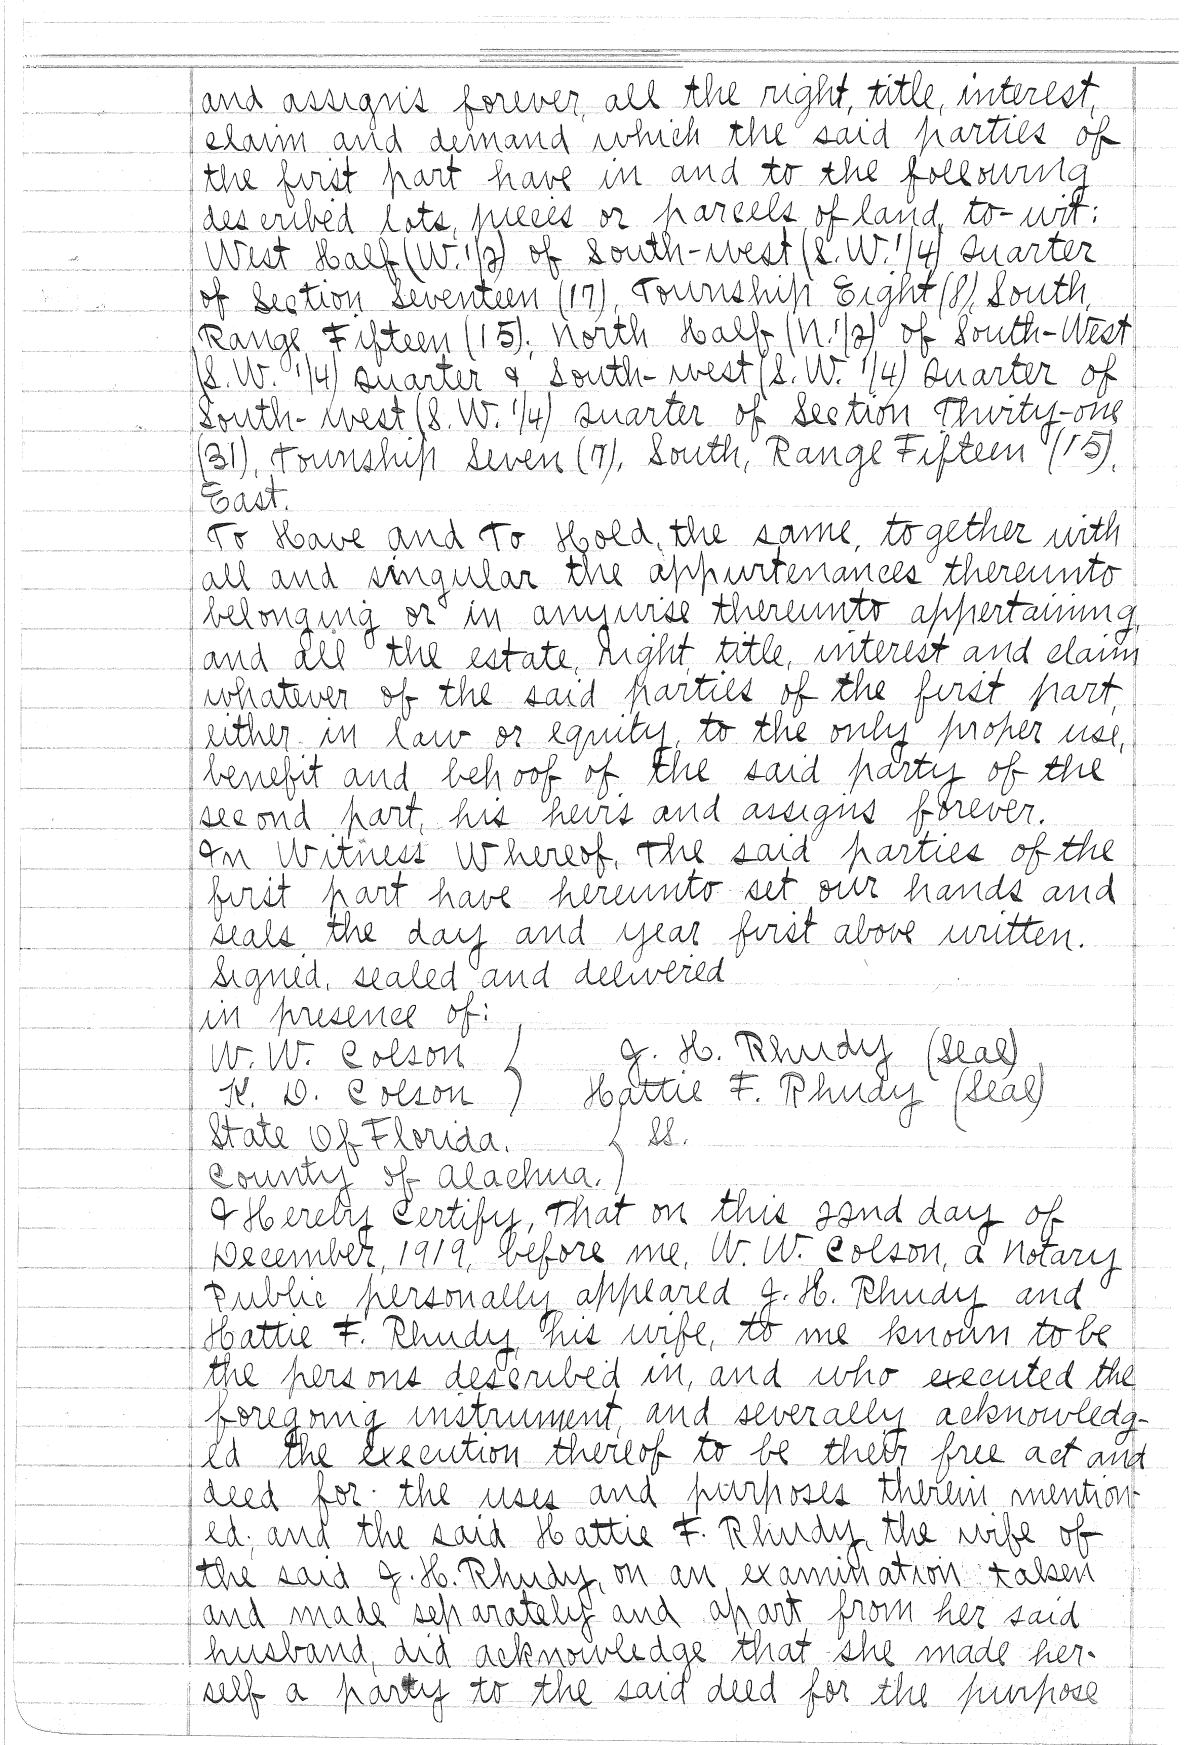 and assigns forever, all the right, title, interest,
claim and demand which the said parties of
the first part have in and to the following
described lots, pieces or parcels of land, to-wit:
West Half (W.1/2) of South-west (S.W.1/4) quarter
of Section Seventeen (17), Township Eight (8), South,
Range Fifteen (15); North Half (N.1/2) of South-West
(S.W. 1/4) quarter & South-west (S.W. 1/4) quarter of
South-west (S.W. 1/4) quarter of Section Thirity-one
(31), Township Seven (7), South, Range Fifteen (15),
East.
To Have and To Hold, the same, together with
all and singular the appurtenances thereunto
belonging or in anywise thereunto appertaining,
and all the estate, right, title, interest and claim
whatever of the said parties of the first part,
either in law or equity, to the only proper use,
benefit and behoof of the said party of the
second part, his heirs and assigns forever.
In Witness Whereof, The said parties of the
first part have hereunto set our hands and
seals the day and year first above written.
Signed, sealed and delivered
in presence of:
W. W. Colson } J. H. Rhudy (Seal)
K. D. Colson } Hattie F. Rhudy (Seal)
State Of Florida. } SS.
County of Alachua. }
I Hereby Certify, That on this 22nd day of
December, 1919, before me, W. W. Colson, a Notary
Public personally appeared J. H. Rhudy and
Hattie F. Rhudy, his wife, to me known to be
the persons described in, and who executed the
foregoing instrument, and severally acknowledg-
ed the execution thereof to be their free act and
deed for the uses and purposes therein mention-
ed; and the said Hattie F. Rhudy, the wife of
the said J. H. Rhudy, on an examination taken
and made separately and apart from her said
husband, did acknowledge that she made her-
self a party to the said deed for the purpose